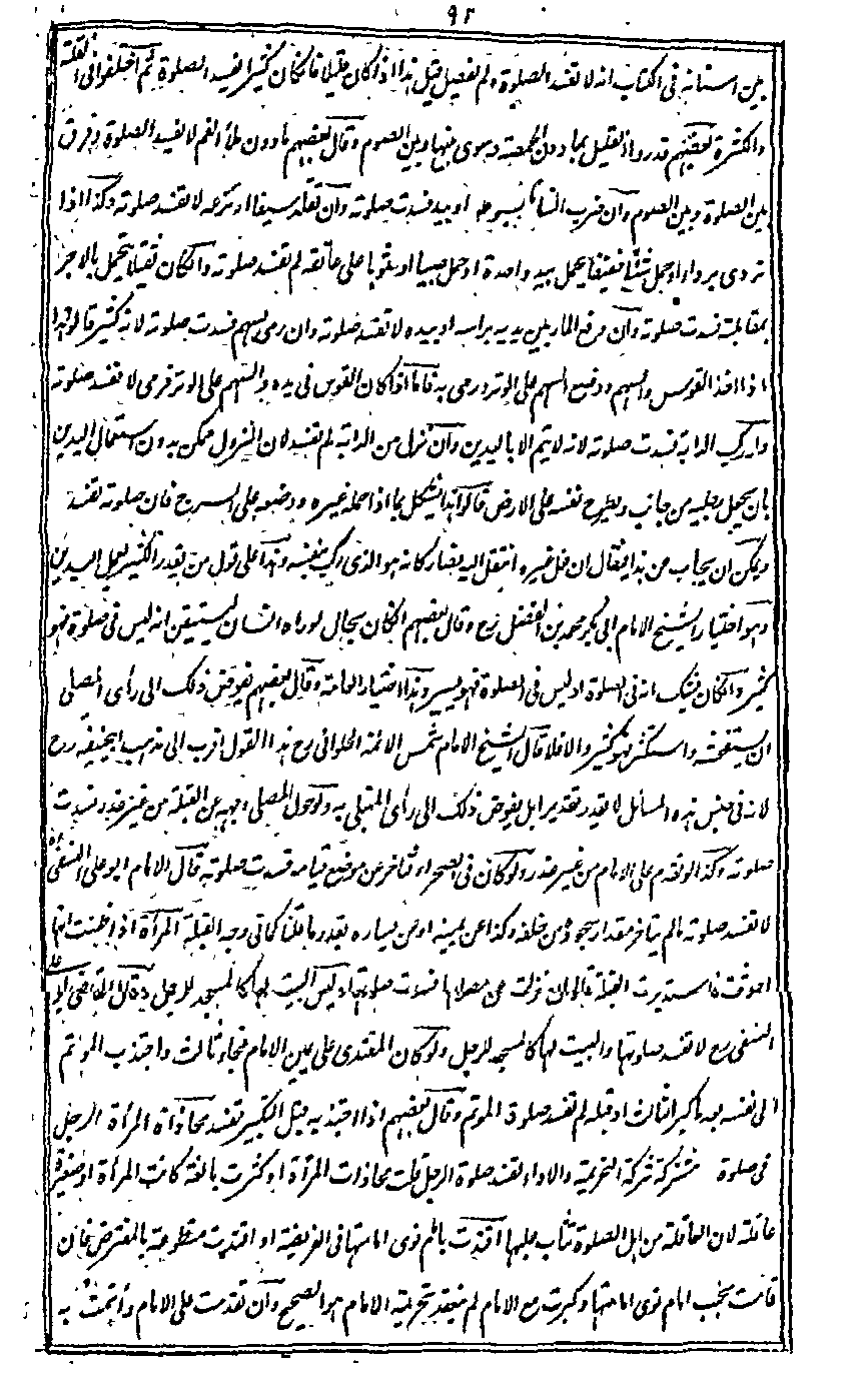 ٩٢
بين اسنانه فى الكتاب انه لا تفسد الصلوة ولم يفصل قيل هذا اذا كان قليلا فان كان كثيرا يفسد الصلوة ثم اختلفوا فى القلة
والكثرة بعضهم قدروا القليل بما دون الحمصة وسوى بينها وبين الصوم وقال بعضهم ما دون ملأ الفم لا يفسد الصلوة وفرق
بين الصلوة وبين الصوم وان ضرب انسانا بسوط او بيده فسدت صلوته وان تقلد سيفا او نزعه لا تفسد صلوته وكذا اذا
تردى برداء او حمل شيئا خفيفا يحمل بيد واحدة او حمل صبيا او ثوبا على عاتقه لم تفسد صلوته وان كان ثقيلا يتحمل بالاجر
بمقابلته فسدت صلوته وان دفع المار بين يديه براسه او بيده لا تفسد صلوته وان رمى بسهم فسدت صلوته لانه كثير قالوا هذا
اذا اخذ القوس والسهم ووضع السهم على الوتر ورمى به فاما اذا كان القوس فى يده والسهم على الوتر فرمى لا تفسد صلوته
وان ركب الدابة فسدت صلوته لانه لا يتم الا باليدين وان نزل من الدابة لم تفسد لان النزول ممكن بدون استعمال اليدين
بان يحمل رجليه من جانب ويطرح نفسه على الارض قالوا هذا يشكل بما اذا حمله غيره ووضعه على السرج فان صلوته تفسد
ويمكن ان يجاب عن هذا فيقال ان فعل غيره انتقل اليه فصار كانه هو الذى ركب بنفسه وهذا على قول من يقدر الكثير بعمل اليدين
وهو اختيار الشيخ الامام ابى بكر محمد بن الفضل رح وقال بعضهم ان كان بحال لو راه انسان يستيقن انه ليس فى صلوة فهو
كثير وان كان يشك انه فى الصلوة او ليس فى الصلوة فهو يسير وهذا اختيار العامة وقال بعضهم يفوض ذلك الى رأى المصلى
ان استفحشه واستكثره فهو كثير والا فلا قال الشيخ الامام شمس الائمة الحلوانى رح هذا القول اقرب الى مذهب ابيحنيفة رح
لانه فى جنس هذه المسائل لا يقدر تقديرا بل يفوض ذلك الى رأى المبتلى به ولو حول المصلى وجهه عن القبلة من غير عذر فسدت
صلوته وكذا لو تقدم على الامام من غير عذر ولو كان فى الصحراء فتاخر عن موضع قيامه فسدت صلوته قال الامام ابو على النسفى رح
لا تفسد صلوته مالم يتاخر مقدار سجوده من خلفه وكذا عن يمينه او عن يساره بقدر ما قلنا كما فى وجه القبلة المرأة اذا ظنت انها
احدثت فاستدبرت القبلة قالوا ان نزلت عن مصلاها فسدت صلوتها وليس البيت لها كالمسجد للرجل وقال القاضى ابو على
النسفى رح لا تفسد صلوتها والبيت لها كالمسجد للرجل ولو كان المقتدى على يمين الامام فجاء ثالث واجتذب الموتم
الى نفسه بعد ما كبر الثالث او قبله لم تفسد صلوة الموتم وقال بعضهم اذا اجتذبه قبل التكبير تفسد محاذاة المرأة الرجل
فى صلوة مشتركة شركة التحريمة والاداء تفسد صلوة الرجل قلت محاذات المرأة او كثرت بالغة كانت المرأة او صغيرة
عاقلة لان العاقلة من اهل الصلوة تثاب عليها اقتدت بالم نوى امامتها فى الفريضة او اقتدت متطوعة بالمفترض فان
قامت بجنب امام نوى امامتها وكبرت مع الامام لم تنعقد تحريمة الامام هو الصحيح وان تقدمت على الامام وأتمت به